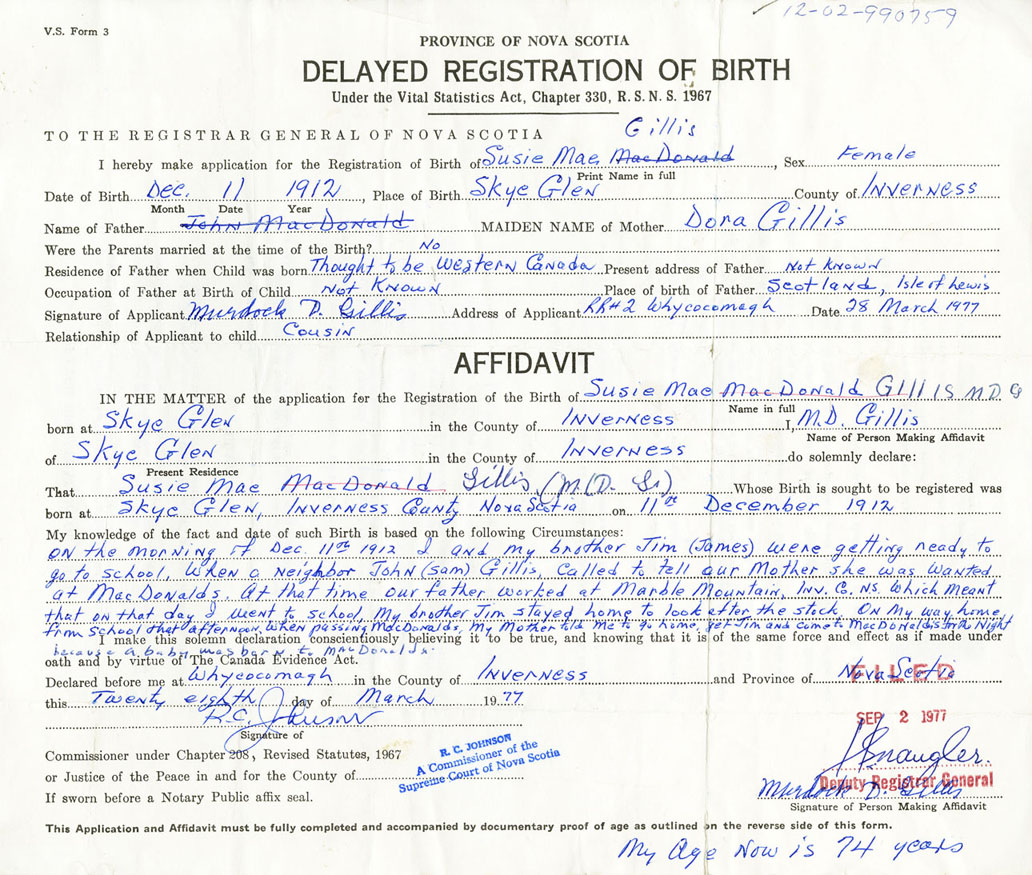 12-02-990759
V.S. Form 3
PROVINCE OF NOVA SCOTIA
DELAYED REGISTRATION OF BIRTH
Under the Vital Statistics Act, Chapter 330, R.S.N.S. 1967
TO THE REGISTRAR GENERAL OF NOVA SCOTIA
Gillis
I hereby make application for the Registration of Birth of Susie Mae MacDonald, Sex Female
Print Name in full
Date of Birth Dec. 11 1912, Place of Birth Skye Glen County of Inverness
Month Date Year
Name of Father John MacDonald MAIDEN NAME of Mother Dora Gillis
Were the Parents married at the time of the Birth? No
Residence of Father when Child was born Thought to be Western Canada Present address of Father Not Known
Occupation of Father at Birth of Child Not Known Place of birth of Father Scotland, Isle of Lewis
Signature of Applicant Murdock D. Gillis Address of Applicant RR#2 Whycocomagh Date 28 March 1977
Relationship of Applicant to child Cousin
AFFIDAVIT
IN THE MATTER of the application for the Registration of the Birth of Susie Mae MacDonald Gillis M.D.G
Name in full
born at Skye Glen in the County of Inverness I, M.D. Gillis
Name of Person Making Affidavit
of Skye Glen in the County of Inverness do solemnly declare:
Present Residence
That Susie Mae MacDonald Gillis (M.D. Gi) Whose Birth is sought to be registered was
born at Skye Glen, Inverness County Nova Scotia on 11th December 1912
My knowledge of the fact and date of such Birth is based on the following Circumstances:
On the morning of Dec. 11th 1912 I and my brother Jim (James) were getting ready to
go to school, when a neighbor John (Sam) Gillis, called to tell our Mother she was wanted
at MacDonalds. At that time our father worked at Marble Mountain, Inv. Co. NS. which meant
that on that day I went to school, My brother Jim stayed home to look after the stock. On My way home,
from school that afternoon, when passing MacDonalds, my Mother told me to go home, get Jim and come to MacDonalds for the Night
I make this solemn declaration conscientiously believing it to be true, and knowing that it is of the same force and effect as if made under
because a baby was born to MacDonalds.
oath and by virtue of The Canada Evidence Act.
Declared before me at Whycocomagh in the County of Inverness and Province of Nova Scotia
FILED
this Twenty eighth day of March 1977
SEP 2 1977
R.C. Johnson
Signature of
Commissioner under Chapter 208, Revised Statutes, 1967
R. C. JOHNSON
A Commissioner of the
Supreme Court of Nova Scotia
or Justice of the Peace in and for the County of
Deputy Registrar General
Murdock D. Gillis
If sworn before a Notary Public affix seal.
Signature of Person Making Affidavit
This Application and Affidavit must be fully completed and accompanied by documentary proof of age as outlined on the reverse side of this form.
My Age Now is 74 years